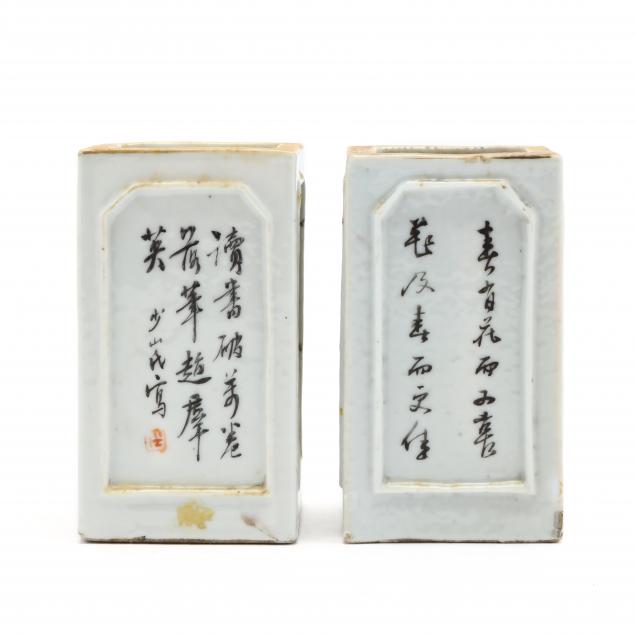 讀書破萬卷
落筆超羣
英
少山氏寫
春有花而喜
花及春而更佳